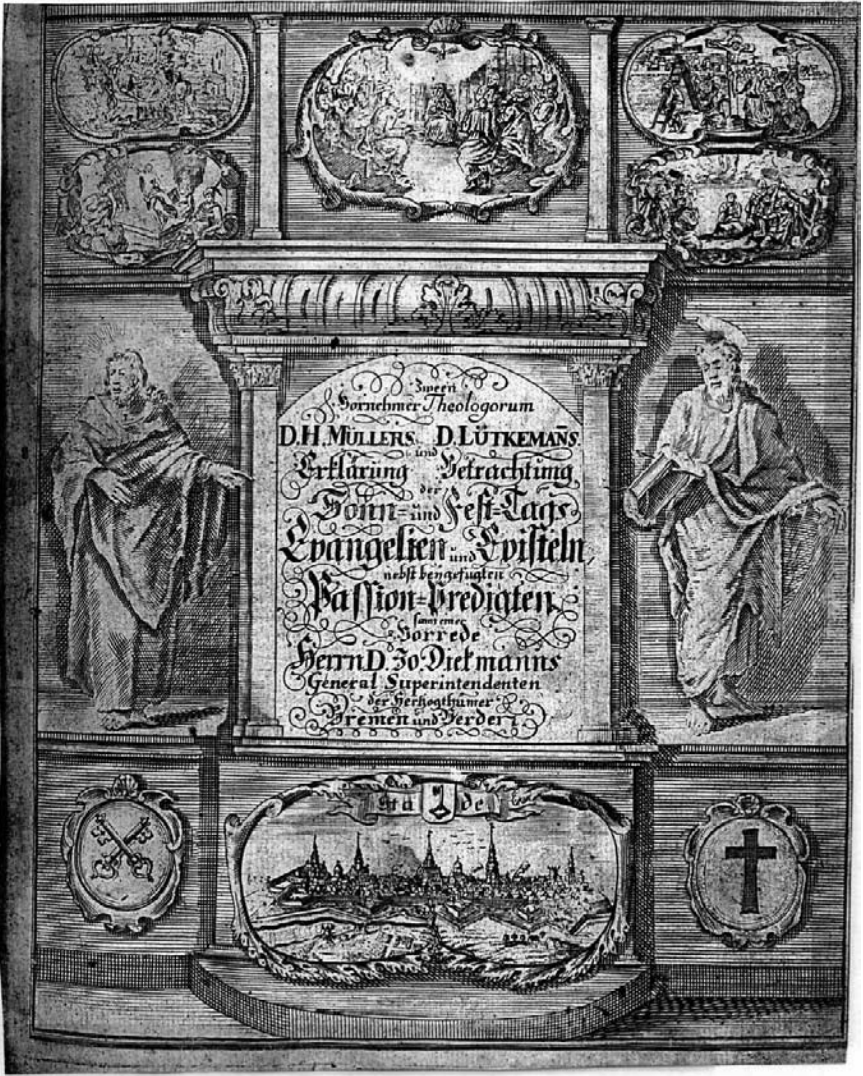 Zween
Vornehmer Theologorum
D.H. MÜLLERS D. LÜTKEMAÑS
und
Erklärung Betrachtung
der
Sonn= und Fest=Tags
Evangelien und Episteln,
nebst beygefügten
Passion=Predigten,
samt einer
Vorrede
Herrn D. Jo. Diekmanns
General Superintendenten
der Hertzogthümer
Bremen und Verden
Sta de